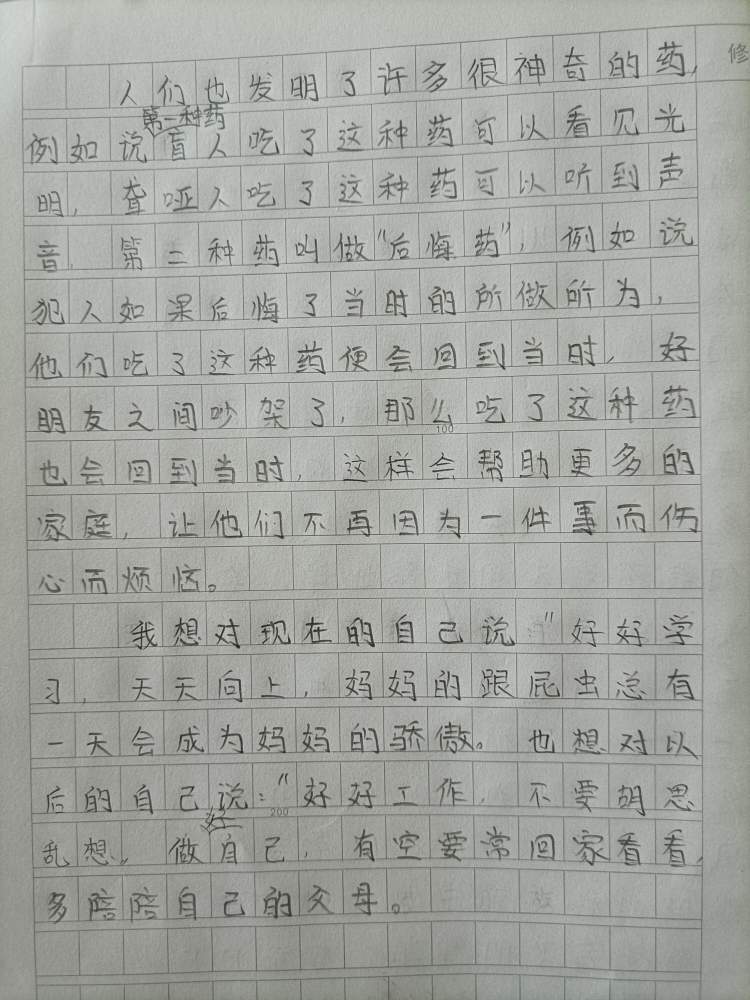 人们也发明了许多很神奇的药,
修
第一种药
例如说盲人吃了这种药可以看见光
明，聋哑人吃了这种药可以听到声
音，第二种药叫做"后悔药"，例如说
犯人如果后悔了当时的所做所为，
他们吃了这种药便会回到当时，好
朋友之间吵架了，那么吃了这种药
100
也会回到当时，这样会帮助更多的
家庭，让他们不再因为一件事而伤
心而烦恼。
我想对现在的自己说"好好学
习，天天向上，妈妈的跟屁虫总有
一天会成为妈妈的骄傲。也想对以
后的自己说："好好工作，不要胡思
200
好
乱想，做自己，有空要常回家看看,
多陪陪自己的父母。